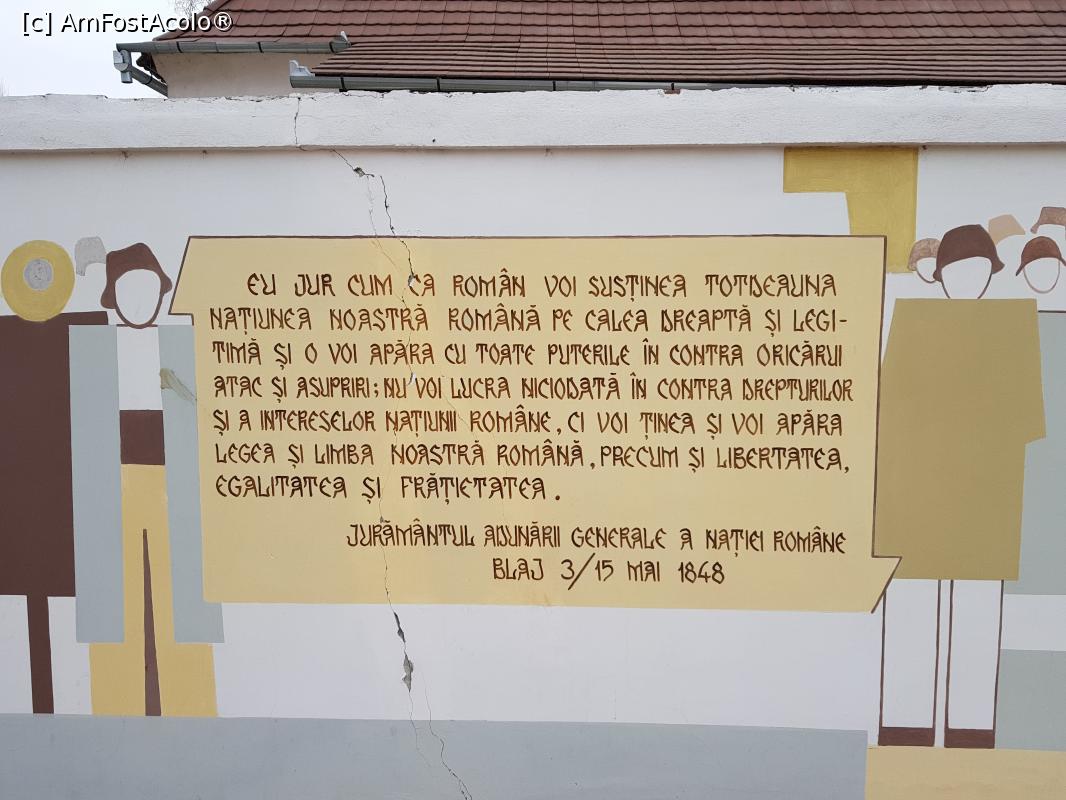 [c] AmFostAcolo®
EU JUR CUM CA ROMÂN VOI SUSȚINEA TOTDEAUNA
NAȚIUNEA NOASTRĂ ROMÂNĂ PE CALEA DREAPTĂ ȘI LEGI-
TIMĂ ȘI O VOI APĂRA CU TOATE PUTERILE ÎN CONTRA ORICĂRUI
ATAC ȘI ASUPRIRI; NU VOI LUCRA NICIODATĂ ÎN CONTRA DREPTURILOR
ȘI A INTERESELOR NAȚIUNII ROMÂNE, CI VOI ȚINEA ȘI VOI APĂRA
LEGEA ȘI LIMBA NOASTRĂ ROMÂNĂ, PRECUM ȘI LIBERTATEA,
EGALITATEA ȘI FRĂȚIETATEA.
JURĂMÂNTUL ADUNĂRII GENERALE A NAȚIEI ROMÂNE
BLAJ 3/15 MAI 1848